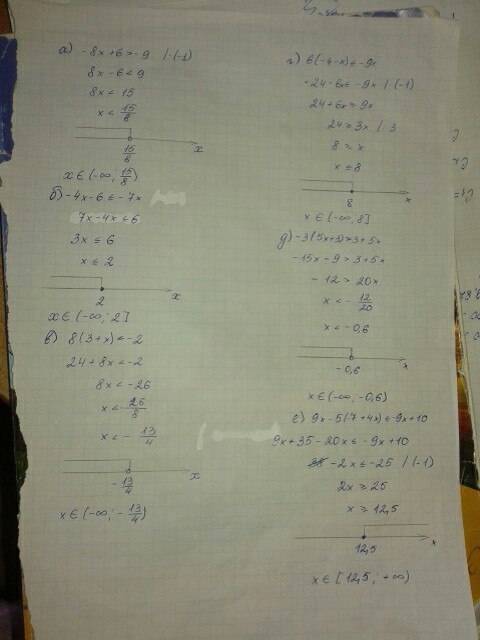 а) -8x+6>-9 /·(-1)
8x-6<9
8x<15
x<15/8
15/8
x
x∈(-∞; 15/8)
б) -4x-6≤-7x
7x-4x≤6
3x≤6
x≤2
2
x
x∈(-∞; 2]
в) 8(3+x)<-2
24+8x<-2
8x<-26
x<-26/8
x<-13/4
-13/4
x
x∈(-∞; -13/4)
г) 6(-4-x)≤-9x
-24-6x≤-9x /·(-1)
24+6x≥9x
24≥3x /:3
8≥x
x≤8
8
x
x∈(-∞, 8]
д) -3(5x+3)>3+5x
-15x-9>3+5x
-12>20x
x<-12/20
x<-0,6
-0,6
x
x∈(-∞, -0,6)
е) 9x-5(7+4x)≤9x+10
9x+35-20x≤-9x+10
-2x≤-25 /(-1)
2x≥25
x≥12,5
12,5
x
x∈[12,5; +∞)